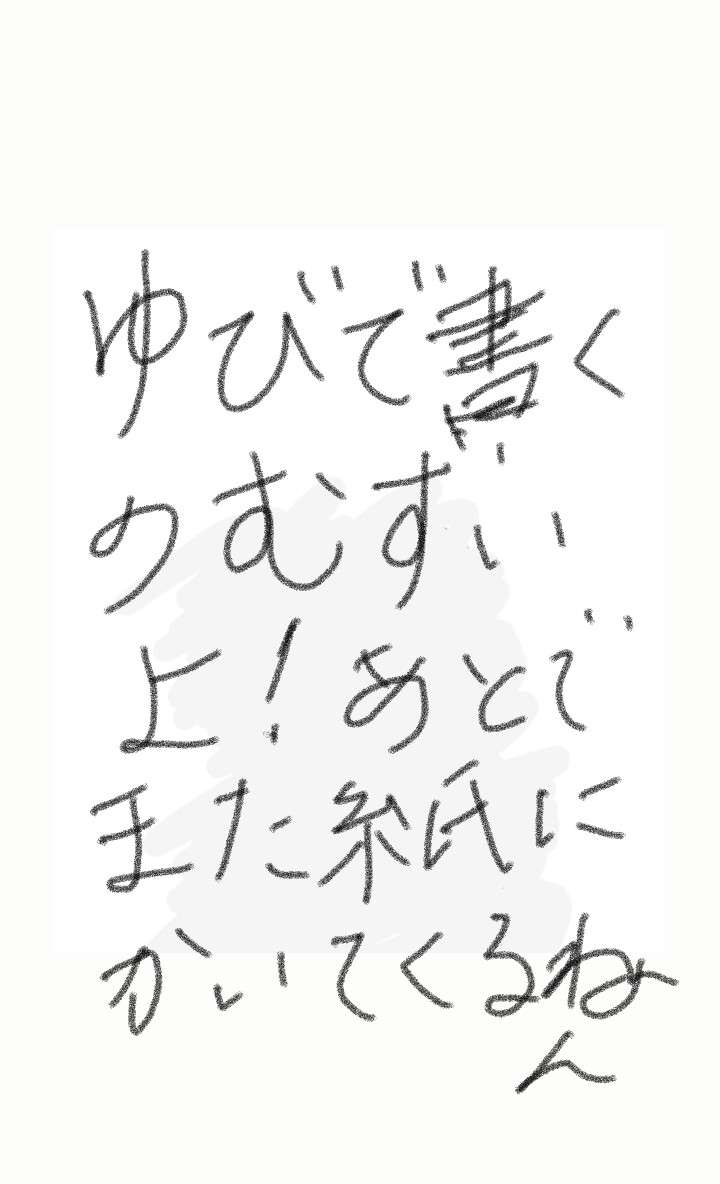 ゆびで書く
のむずい
よ!あとで
また紙に
かいてくるね
ん